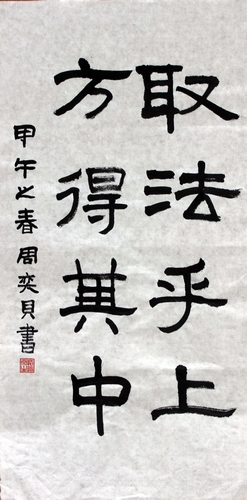 取法乎上
方得其中
甲午之春周奕贝書